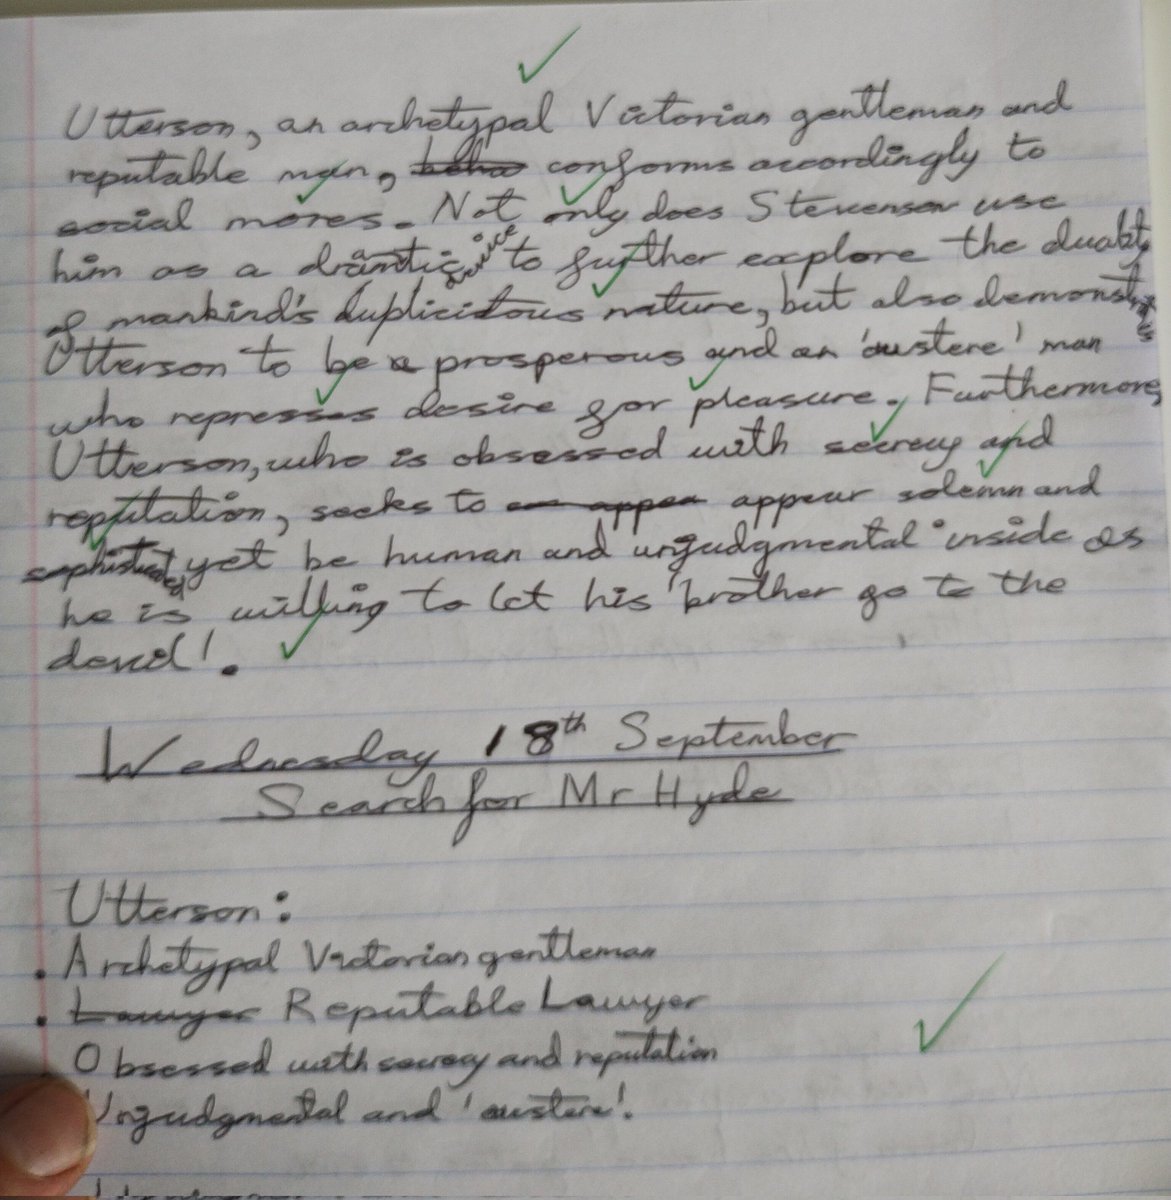 Utterson, an archetypal Victorian gentleman and
reputable man, conforms accordingly to
social mores. Not only does Stevenson use
him as a dramatic device to further explore the duality
of mankind's duplicitous nature, but also demonstrates
Utterson to be a prosperous and an 'austere' man
who represses desire for pleasure. Furthermore,
Utterson, who is obsessed with secrecy and
reputation, seeks to appear solemn and
sophisticated yet be human and unjudgmental inside as
he is willing to let his 'brother go to the
devil'.
Wednesday 18th September
Search for Mr Hyde
Utterson:
• Archetypal Victorian gentleman
• Lawyer Reputable Lawyer
Obsessed with secrecy and reputation
Unjudgmental and 'austere'.